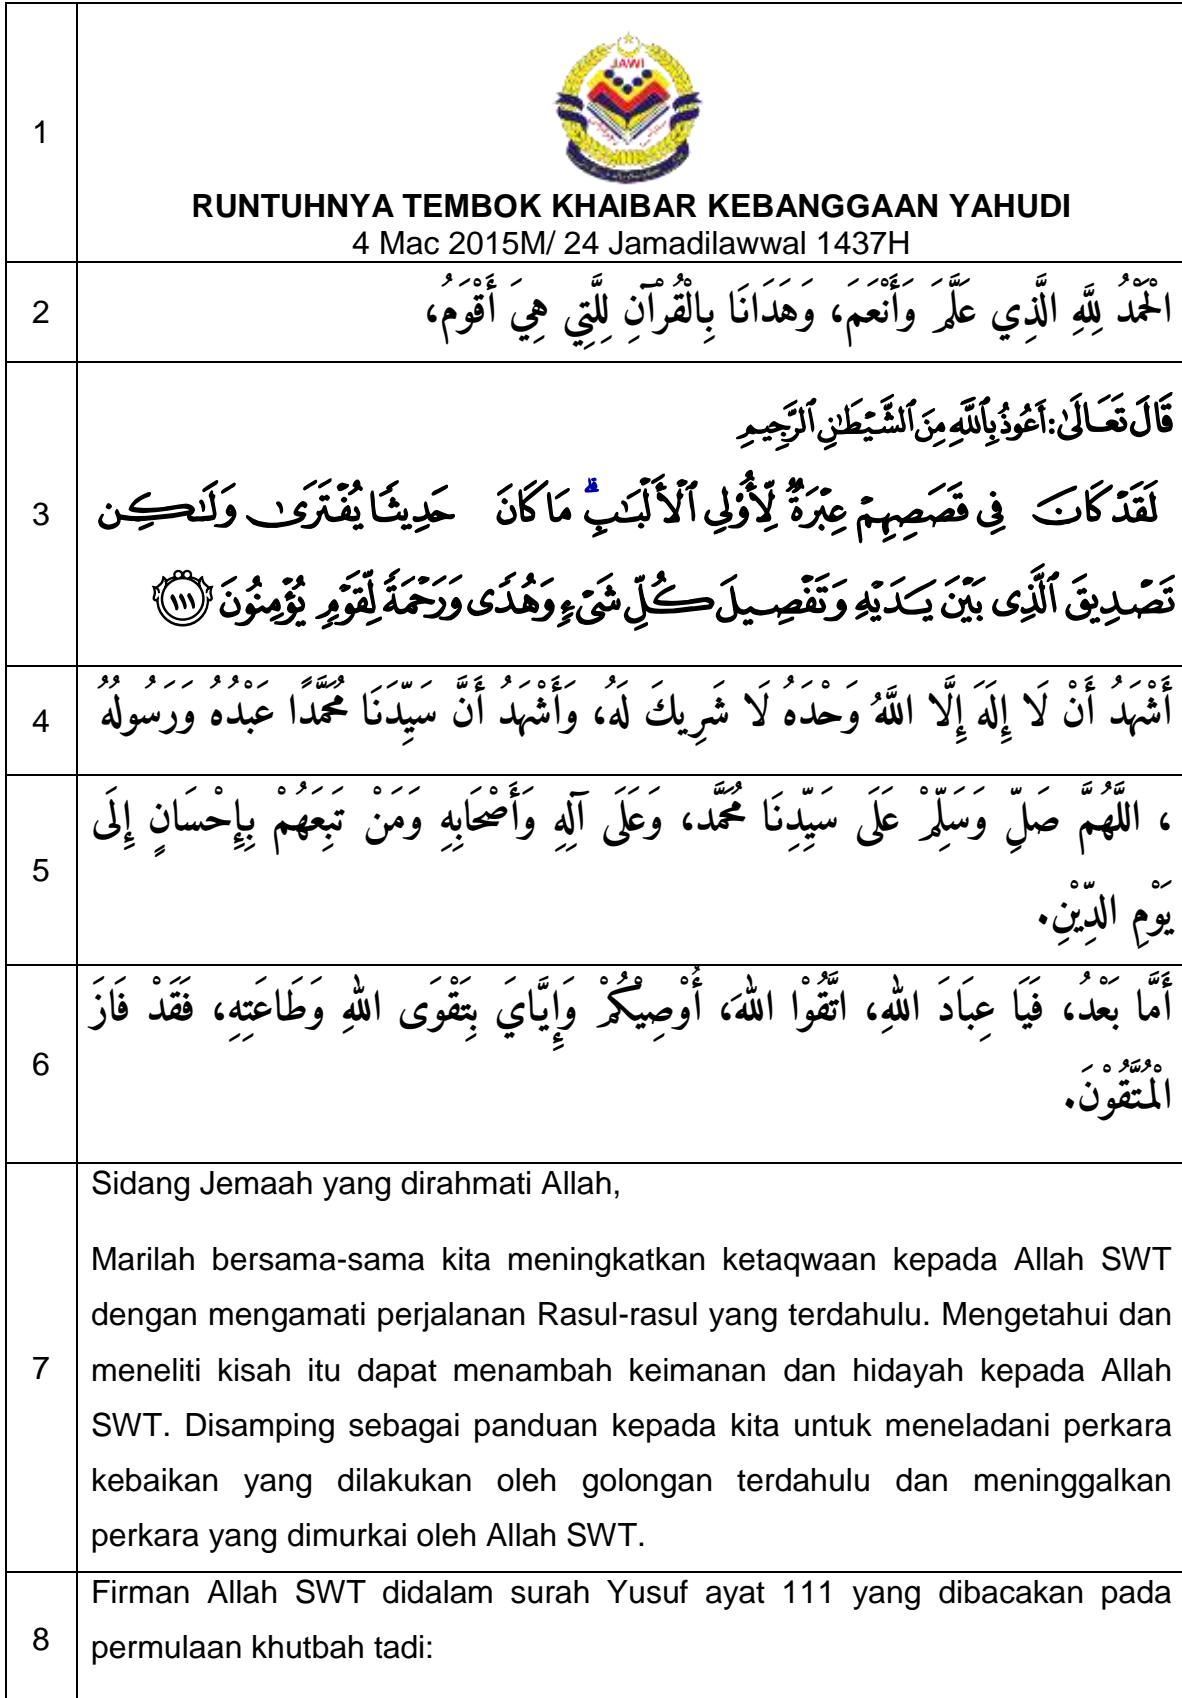 1
JAWI
RUNTUHNYA TEMBOK KHAIBAR KEBANGGAAN YAHUDI
4 Mac 2015M/ 24 Jamadilawwal 1437H
2
الْحَمْدُ لِلَّهِ الَّذِي عَلَّمَ وَأَنْعَمَ، وَهَدَانَا بِالْقُرْآنِ لِلَّتِي هِيَ أَقْوَمُ،
3
قَالَ تَعَالَىٰ: أَعُوذُ بِٱللَّهِ مِنَ ٱلشَّيْطَٰنِ ٱلرَّجِيمِ
لَقَدْ كَانَ فِى قَصَصِهِمْ عِبْرَةٌ لِّأُو۟لِى ٱلْأَلْبَٰبِ ۗ مَا كَانَ حَدِيثًا يُفْتَرَىٰ وَلَٰكِن
تَصْدِيقَ ٱلَّذِى بَيْنَ يَدَيْهِ وَتَفْصِيلَ كُلِّ شَىْءٍ وَهُدًى وَرَحْمَةً لِّقَوْمٍ يُؤْمِنُونَ ﴿١١١﴾
4
أَشْهَدُ أَنْ لَا إِلَهَ إِلَّا اللَّهُ وَحْدَهُ لَا شَرِيكَ لَهُ، وَأَشْهَدُ أَنَّ سَيِّدَنَا مُحَمَّدًا عَبْدُهُ وَرَسُولُهُ
5
، اللَّهُمَّ صَلِّ وَسَلِّمْ عَلَى سَيِّدِنَا مُحَمَّد، وَعَلَى آلِهِ وَأَصْحَابِهِ وَمَنْ تَبِعَهُمْ بِإِحْسَانٍ إِلَى
يَوْمِ الدِّيْنِ.
6
أَمَّا بَعْدُ، فَيَا عِبَادَ اللهِ، اتَّقُوْا اللهَ، أُوْصِيْكُمْ وَإِيَّايَ بِتَقْوَى اللهِ وَطَاعَتِهِ، فَقَدْ فَازَ
الْمُتَّقُوْنَ.
7
Sidang Jemaah yang dirahmati Allah,
Marilah bersama-sama kita meningkatkan ketaqwaan kepada Allah SWT
dengan mengamati perjalanan Rasul-rasul yang terdahulu. Mengetahui dan
meneliti kisah itu dapat menambah keimanan dan hidayah kepada Allah
SWT. Disamping sebagai panduan kepada kita untuk meneladani perkara
kebaikan yang dilakukan oleh golongan terdahulu dan meninggalkan
perkara yang dimurkai oleh Allah SWT.
8
Firman Allah SWT didalam surah Yusuf ayat 111 yang dibacakan pada
permulaan khutbah tadi: